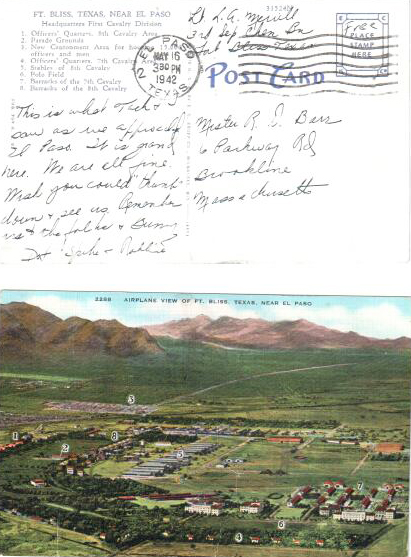 FT. BLISS, TEXAS, NEAR EL PASO
Headquarters First Cavalry Division
1. Officers' Quarters, 8th Cavalry Area
2. Parade Grounds
3. New Cantonment Area for
officers and men
4. Officers' Quarters, 7th Cavalry Area
5. Stables of 8th Cavalry
6. Polo Field
7. Barracks of the 7th Cavalry
8. Barracks of the 8th Cavalry
Lt. L. A. Merrill
3rd Sep Chem Bn
Fort Bliss Texas
EL PASO
MAY 16
330 PM
1942
TEXAS
Free
PLACE
STAMP
HERE
POST CARD
This is what Jack &
I saw as we approached
El Paso. It is grand
here. We are all fine.
Wish you could "thumb"
down & see us. Remember
us to the folks & Bunny
Dot Spike & Robbie
Mister R. I. Barr
6 Parkway Rd
Brookline
Massachusetts
2288 AIRPLANE VIEW OF FT. BLISS, TEXAS, NEAR EL PASO
3
1
2
8
5
7
6
4